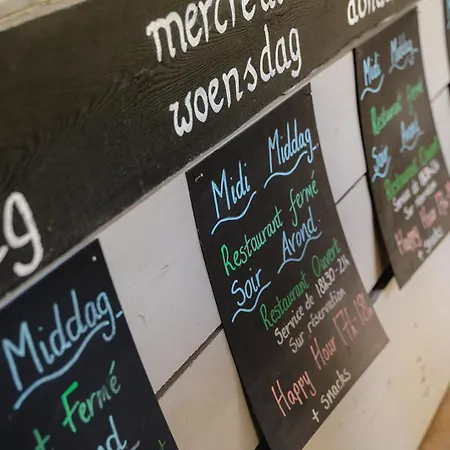 mercredi
woensdag
Midi Middag
Restaurant fermé
Soir Avond
Restaurant Ouvert
Service de 18h30-21h
Sur réservation
Happy Hour 17h 18h
+ snacks
Midi Midd
Restaurant fermé
Soir Avond
Restaurant Ouvert
Service de 18h
Sur réserva
Happy Hour 17h
+ Snacks
g
Middag
Fermé
ond